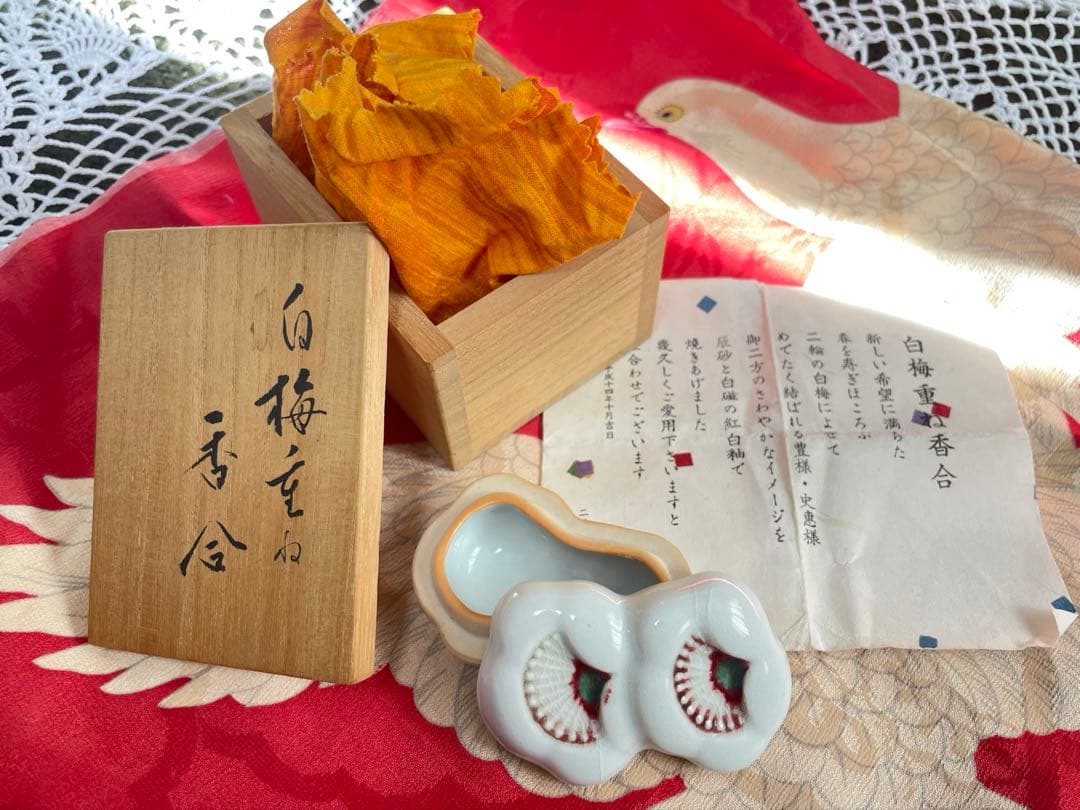 白梅重ね
香合
白梅重ね香合
新しい希望に満ちた
春を寿ぎほころぶ
二輪の白梅によせて
めでたく結ばれる豊様・史惠様
御二方のさわやかなイメージを
辰砂と白磁の紅白釉で
焼きあげました
幾久しくご愛用下さいますと
合わせでございます
平成十四年十月吉日